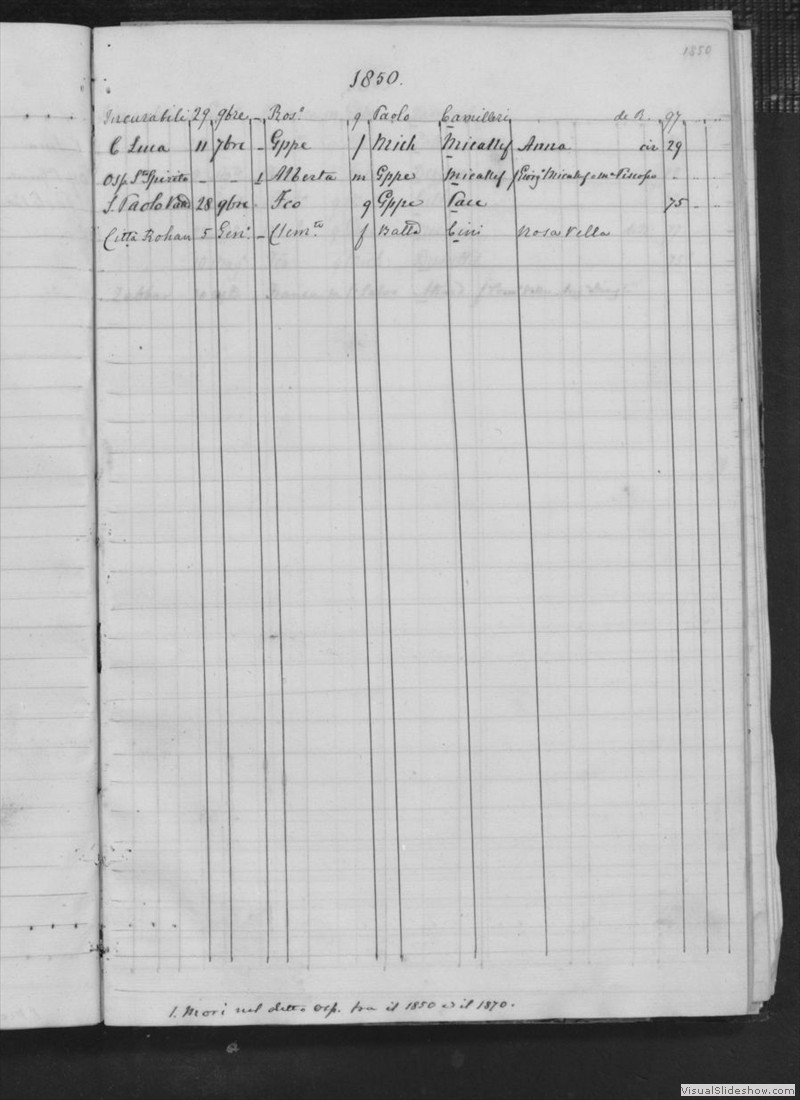 1850
1850.
Incurabili 29 9bre - Ros.ª g Paolo Camilleri de R. 97
C Luca 11 7bre - Gppe f Mich Micallef Anna cir 29
Osp. S.to Spirito - - 1 Alberta m Gppe Micallef
S. Paolo 28 9bre Fco g Gppe Pace 75
Città Rohan 5 Gen.º - Clem.te f Batta Cini Rosa Vella
1. Mori nel detto Osp. tra il 1850 e il 1870.
VisualSlideshow.com